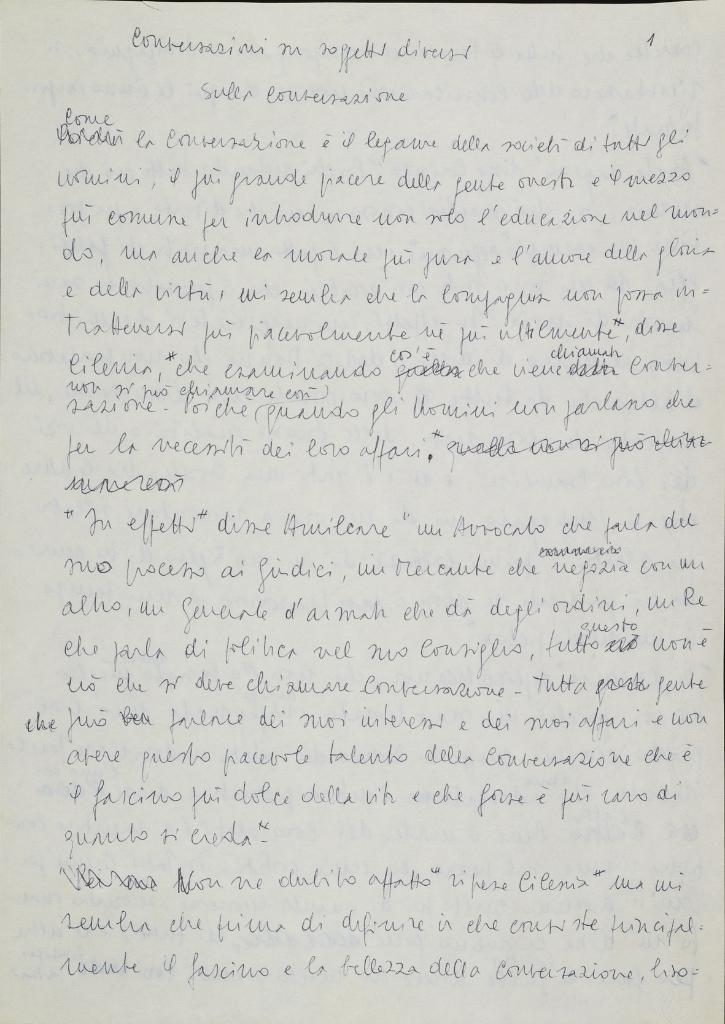 Conversazioni su soggetti diversi
1
Sulla Conversazione
Come
Poiché la Conversazione è il legame della società di tutti gli
uomini, il più grande piacere della gente onesta e il mezzo
più comune per introdurre non solo l'educazione nel mon=
do, ma anche la morale più pura e l'amore della gloria
e della virtù, mi sembra che la Compagnia non possa in=
trattenersi più piacevolmente né più utilmente", disse
cos'è chiamata
Cilenia, "che esaminando quello che viene detta Conver=
non si può chiamare così
sazione. Poiché quando gli Uomini non parlano che
per la necessità dei loro affari." quella non si può chia=
mare così
"In effetti" disse Amilcare "un Avvocato che parla del
commercio
suo processo ai Giudici, un Mercante che negozia con un
altro, un Generale d'armata che dà degli ordini, un Re
questo
che parla di politica nel suo Consiglio, tutto ciò non è
ciò che si deve chiamare Conversazione. Tutta questa gente
che può ben parlare dei suoi interessi e dei suoi affari e non
avere questo piacevole talento della Conversazione che è
il fascino più dolce della vita e che forse è più raro di
quanto si creda".
Non ne dubito affatto" riprese Cilenia "ma mi
sembra che prima di definire in che consiste principal=
mente il fascino e la bellezza della Conversazione, biso=